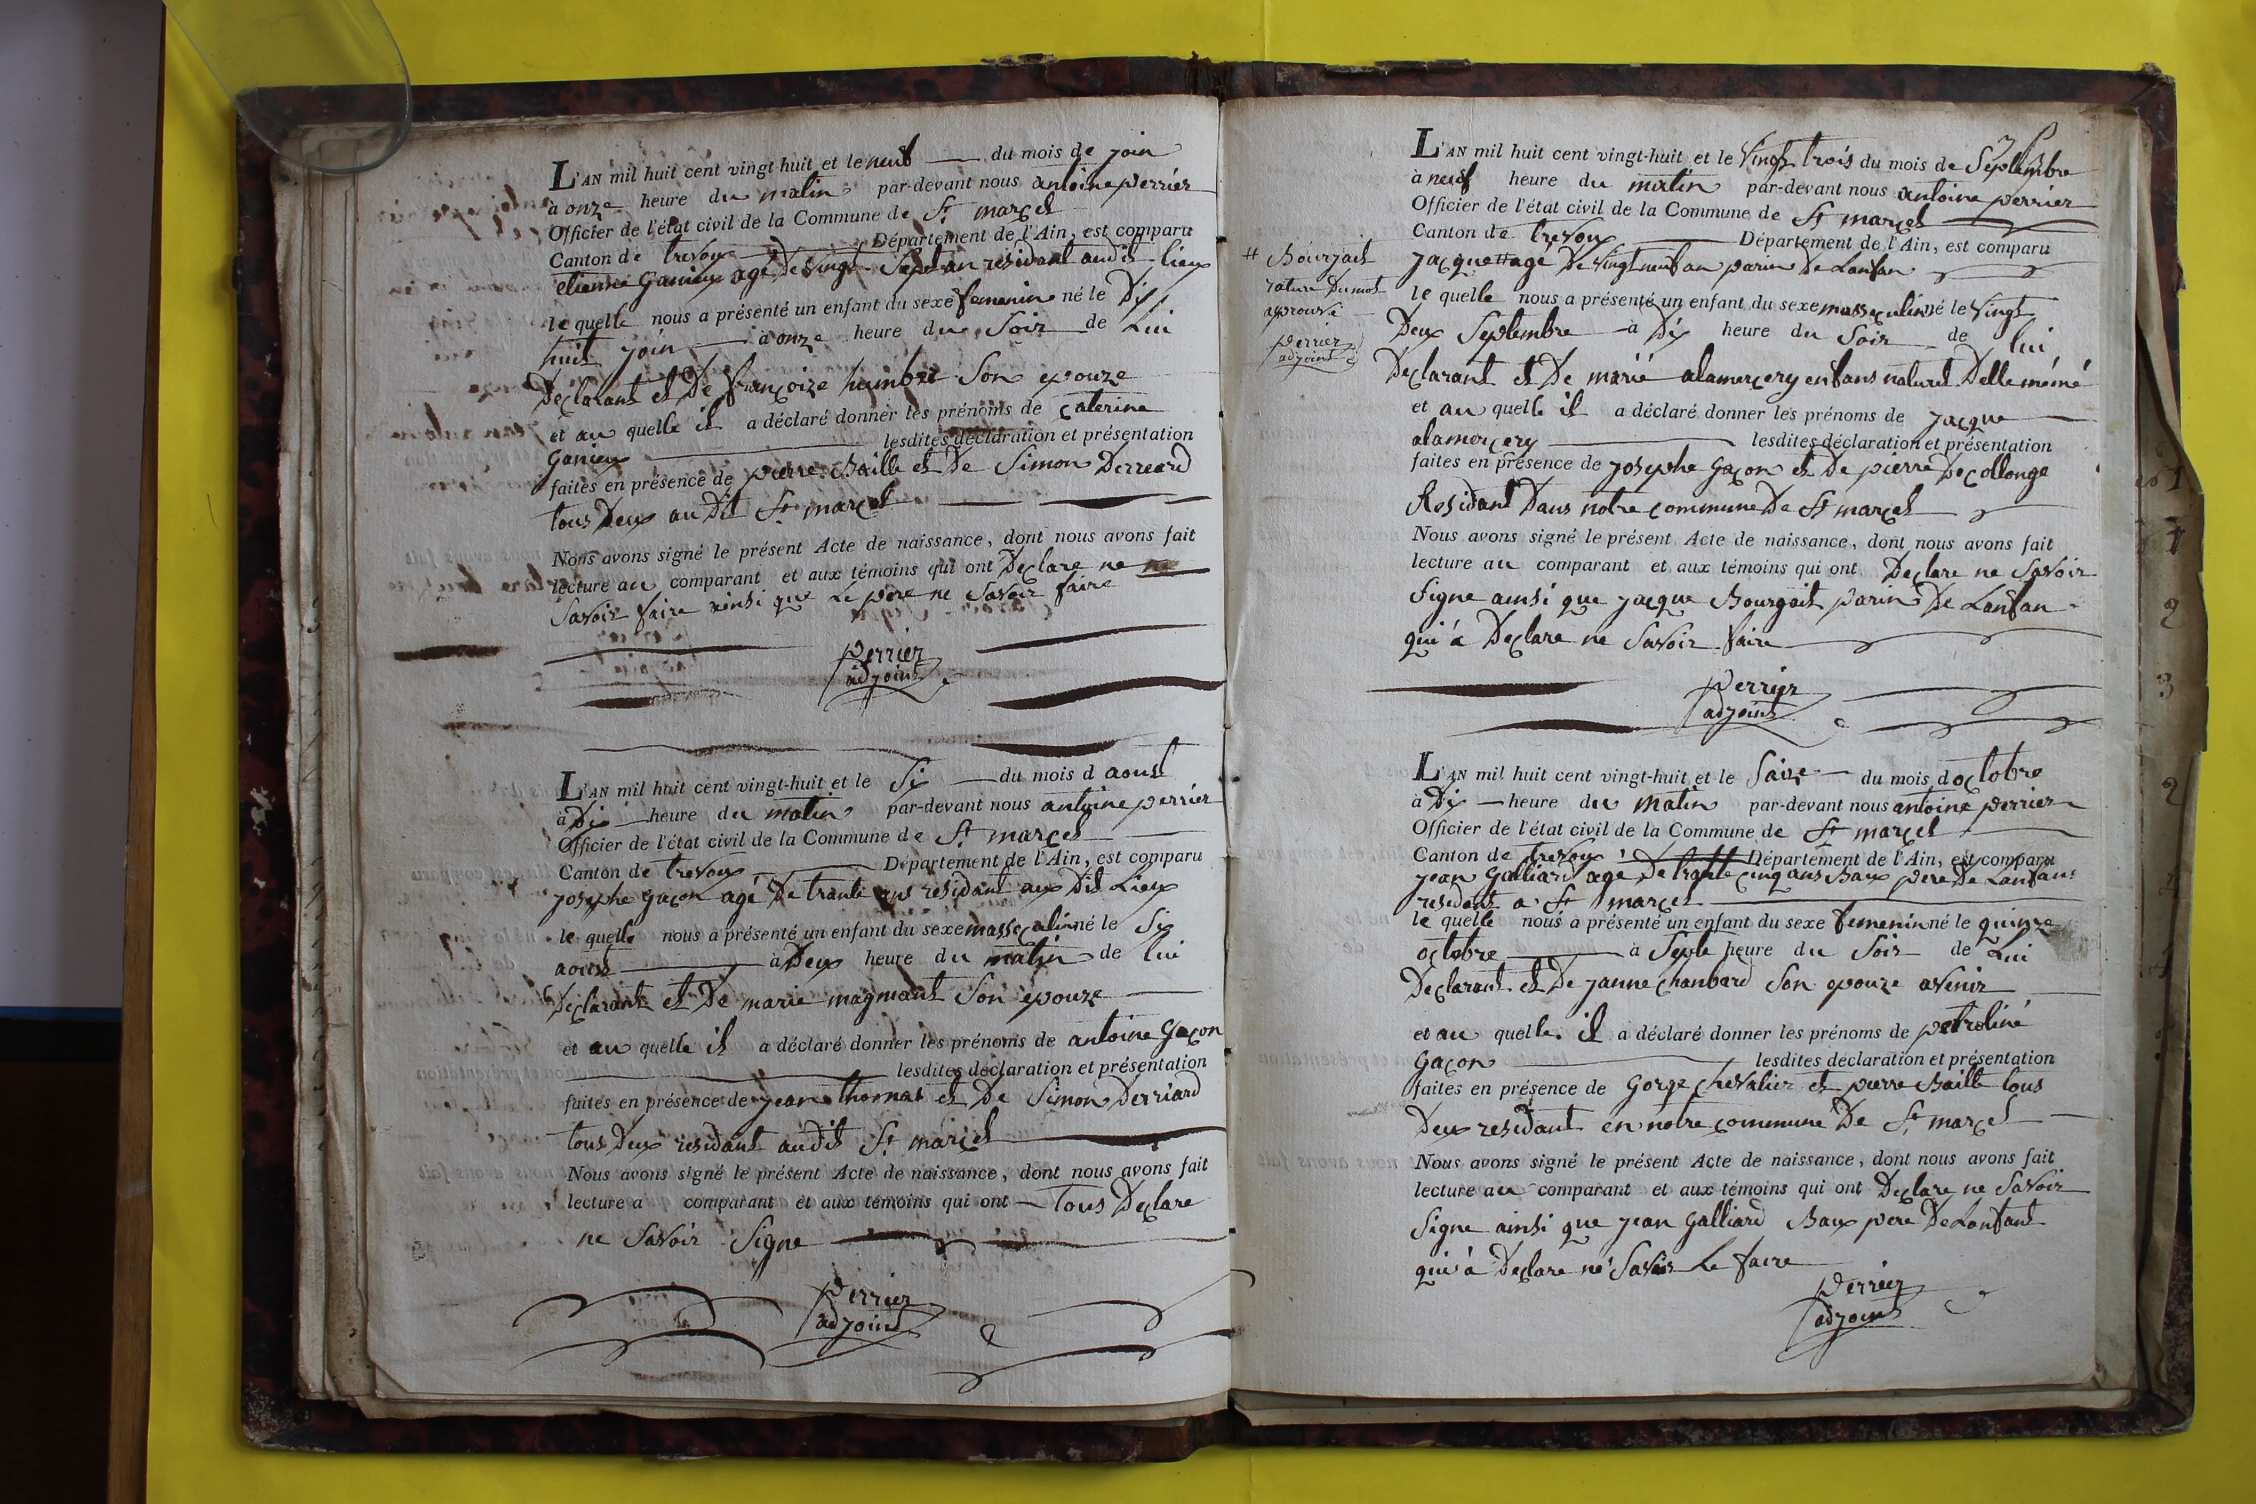 L'AN mil huit cent vingt-huit et le neuf du mois de join
à onze heure du matin par-devant nous antoine perrier
Officier de l'état civil de la Commune de St marcel
Canton de trevoux Département de l'Ain, est comparu
etienne Ganieux agé De vingt Sept an residant audit lieux
le quelle nous a présenté un enfant du sexe femenin né le Dix
huit join à onze heure du Soir de Lui
Declarant et De françoize humbert Son epouze
et au quelle il a déclaré donner les prénoms de Caterine
Ganieux lesdites déclaration et présentation
faites en présence de pierre Baille et De Simon Derreard
tous Deux au Dit St marcel
Nous avons signé le présent Acte de naissance, dont nous avons fait
lecture au comparant et aux témoins qui ont Declare ne
Savoir faire ainsi que Le pere ne Savoir faire
perrier
adjoint
L'AN mil huit cent vingt-huit et le Six du mois d aoust
à Dix heure du matin par-devant nous antoine perrier
Officier de l'état civil de la Commune de St marcel
Canton de trevoux Département de l'Ain, est comparu
josephe Gaçon agé De trante ans residant aux Dit Lieux
le quelle nous a présenté un enfant du sexe massculin né le Six
aoust à Deux heure du matin de lui
Declarant et De marie magmant Son epouze
et au quelle il a déclaré donner les prénoms de antoine Gaçon
lesdites déclaration et présentation
faites en présence de jean thomas et De Simon Derriard
tous Deux residant audit St marcel
Nous avons signé le présent Acte de naissance, dont nous avons fait
lecture a comparant et aux témoins qui ont tous Declare
ne Savoir Signe
perrier
adjoint
L'AN mil huit cent vingt-huit et le Vingt trois du mois de Septembre
à neuf heure du matin par-devant nous antoine perrier
Officier de l'état civil de la Commune de St marcel
Canton de trevoux Département de l'Ain, est comparu
jacque # age De Vingt neuf an parin De Lanfan
le quelle nous a présenté un enfant du sexe massculin né le Vingt
Deux Septembre à Dix heure du Soir de lui
Declarant et De marie alamercery enfans naturel Delle mémé
et au quelle il a déclaré donner les prénoms de jacque
alamercery lesdites déclaration et présentation
faites en présence de josephe Gaçon et De pierre Decollonge
Residant Dans notre commune De St marcel
Nous avons signé le présent Acte de naissance, dont nous avons fait
lecture au comparant et aux témoins qui ont Declare ne Savoir
Signe ainsi que jacque Bourgait parin De Lanfan
qui à Declare ne Savoir faire
perrier
adjoint
# Bourgait
rature Dumot
approuvé
perrier
adjoint
L'AN mil huit cent vingt-huit et le Saize du mois d octobre
à Dix heure du matin par-devant nous antoine perrier
Officier de l'état civil de la Commune de St marcel
Canton de trevoux Département de l'Ain, est comparu
jean Galliard agé De trante cinq ans Baux pere De Lanfans
residant a St marcel
le quelle nous a présenté un enfant du sexe femenin né le quinze
octobre à Septe heure du Soir de Lui
Declarant et De janne Chanbard Son epouze avenir
et au quelle il a déclaré donner les prénoms de petroliné
Gaçon lesdites déclaration et présentation
faites en présence de Gorge Chevalier et pierre Baille tous
Deux residant en notre commune De St marcel
Nous avons signé le présent Acte de naissance, dont nous avons fait
lecture au comparant et aux témoins qui ont Declare ne Savoir
Signe ainsi que jean Galliard Baux pere De Lanfant
qui à Declare ne Savoir Le faire
perrier
adjoint